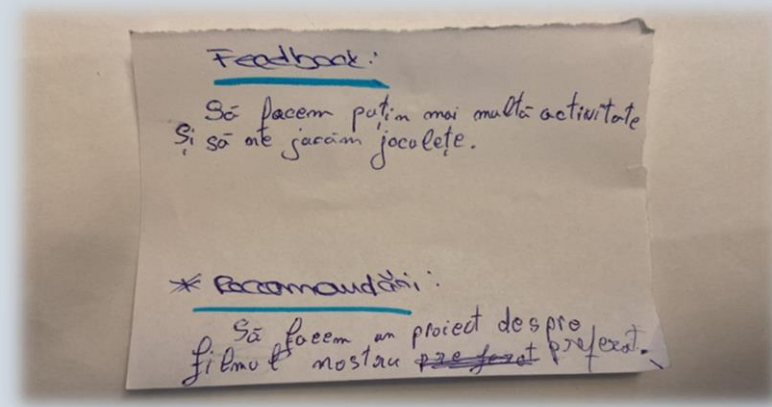 Feedback:
Să facem puțin mai multă activitate
Și să ne jucăm joculețe.
* Recomandări:
Să facem un proiect despre
filmul nostru preferat.